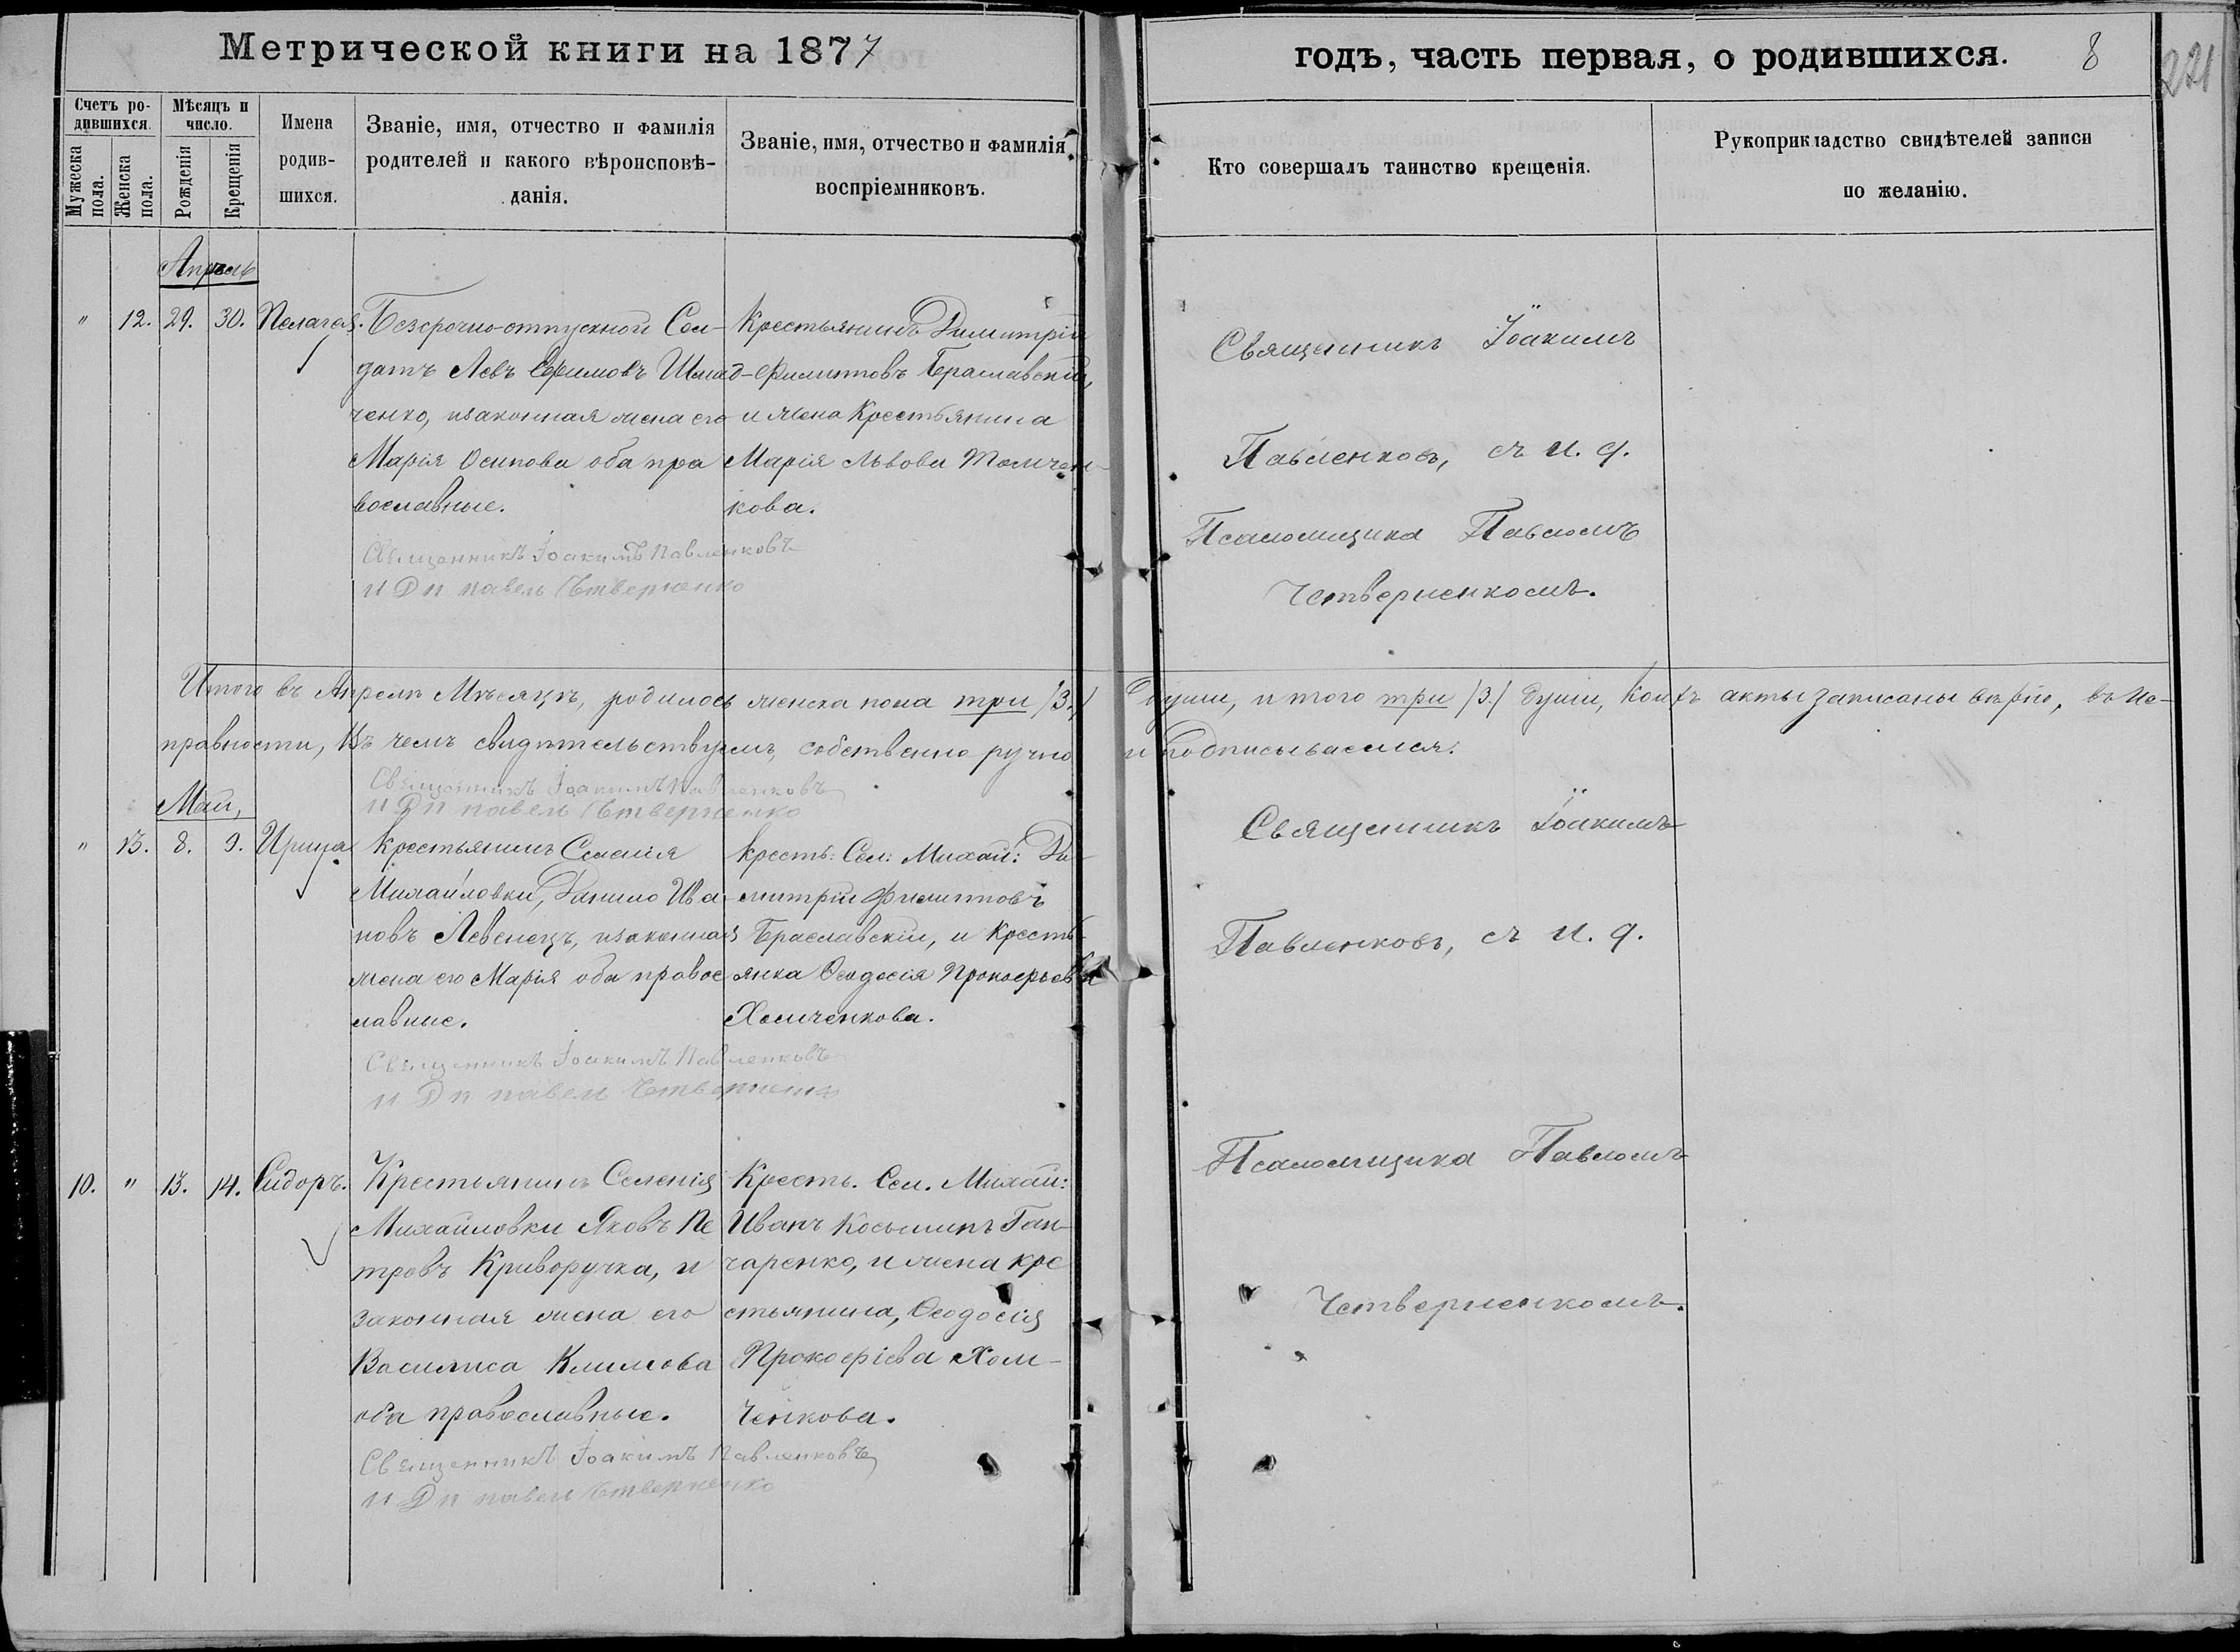 Метрической книги на 1877
годъ, часть первая, о родившихся. 8
221
Счетъ ро-
дившихся.
Мужеска
пола.
Женска
пола.
Мѣсяцъ и
число.
Рожденія
Крещенія
Имена
родив-
шихся.
Званіе, имя, отчество и фамилія
родителей и какого вѣроисповѣ-
данія.
Званіе, имя, отчество и фамилія
воспріемниковъ.
Кто совершалъ таинство крещенія.
Рукоприкладство свидѣтелей записи
по желанію.
Апрель
" 12. 29. 30. Пелагея.
Безсрочно-отпускной Сол-
датъ Левъ Ефимовъ
ченко, изаконная жена его
Марія Осипова оба пра
вославные.
Священникъ Іоакимъ Павленковъ
и Д п павелъ Четверненко
Крестьянинъ Димитрій
Филиповъ Браславскій,
и жена Крестьянина
Марія Львова Толчен-
кова.
Священникъ Іоакимъ
Павленковъ, съ и. д.
Псаломщика Павломъ
Четверненкомъ.
Итого въ Апрелѣ Мѣсяцѣ, родилось женска пола три /3./ души, итого три /3./ души, коихъ акты записаны вѣрно, въ ис-
правности, въ чемъ свидѣтельствуемъ, собственно ручно и подписываемся.
Священникъ Іоакимъ Павленковъ
и Д п павелъ Четверненко
Май,
" 13. 8. 9. Ирина
Крестьянинъ Селенія
Михайловки, Данило Ива-
новъ Левенецъ, изаконная
жена его Марія оба правос
лавные.
Священникъ Іоакимъ Павленковъ
и Д п павелъ Четверненко
кресть: Сел: Михай: Ди-
митрій Филиповъ
Браславскій, и Кресть-
янка Ѳеодосія Прокофьева
Хомченкова.
Священникъ Іоакимъ
Павленковъ, съ и. д.
Псаломщика Павломъ
Четверненкомъ.
10. " 13. 14. Сидоръ.
Крестьянинъ Селенія
Михайловки Яковъ Пе
тровъ Криворучка, и
законная жена его
Василиса Климова
оба православные.
Священникъ Іоакимъ Павленковъ
и Д п павелъ Четверненко
Кресть. Сел. Михай:
Иванъ Косьминъ Ган-
чаренко, и жена кре
стьянина, Ѳеодосія
Прокофіева Хом-
ченкова.